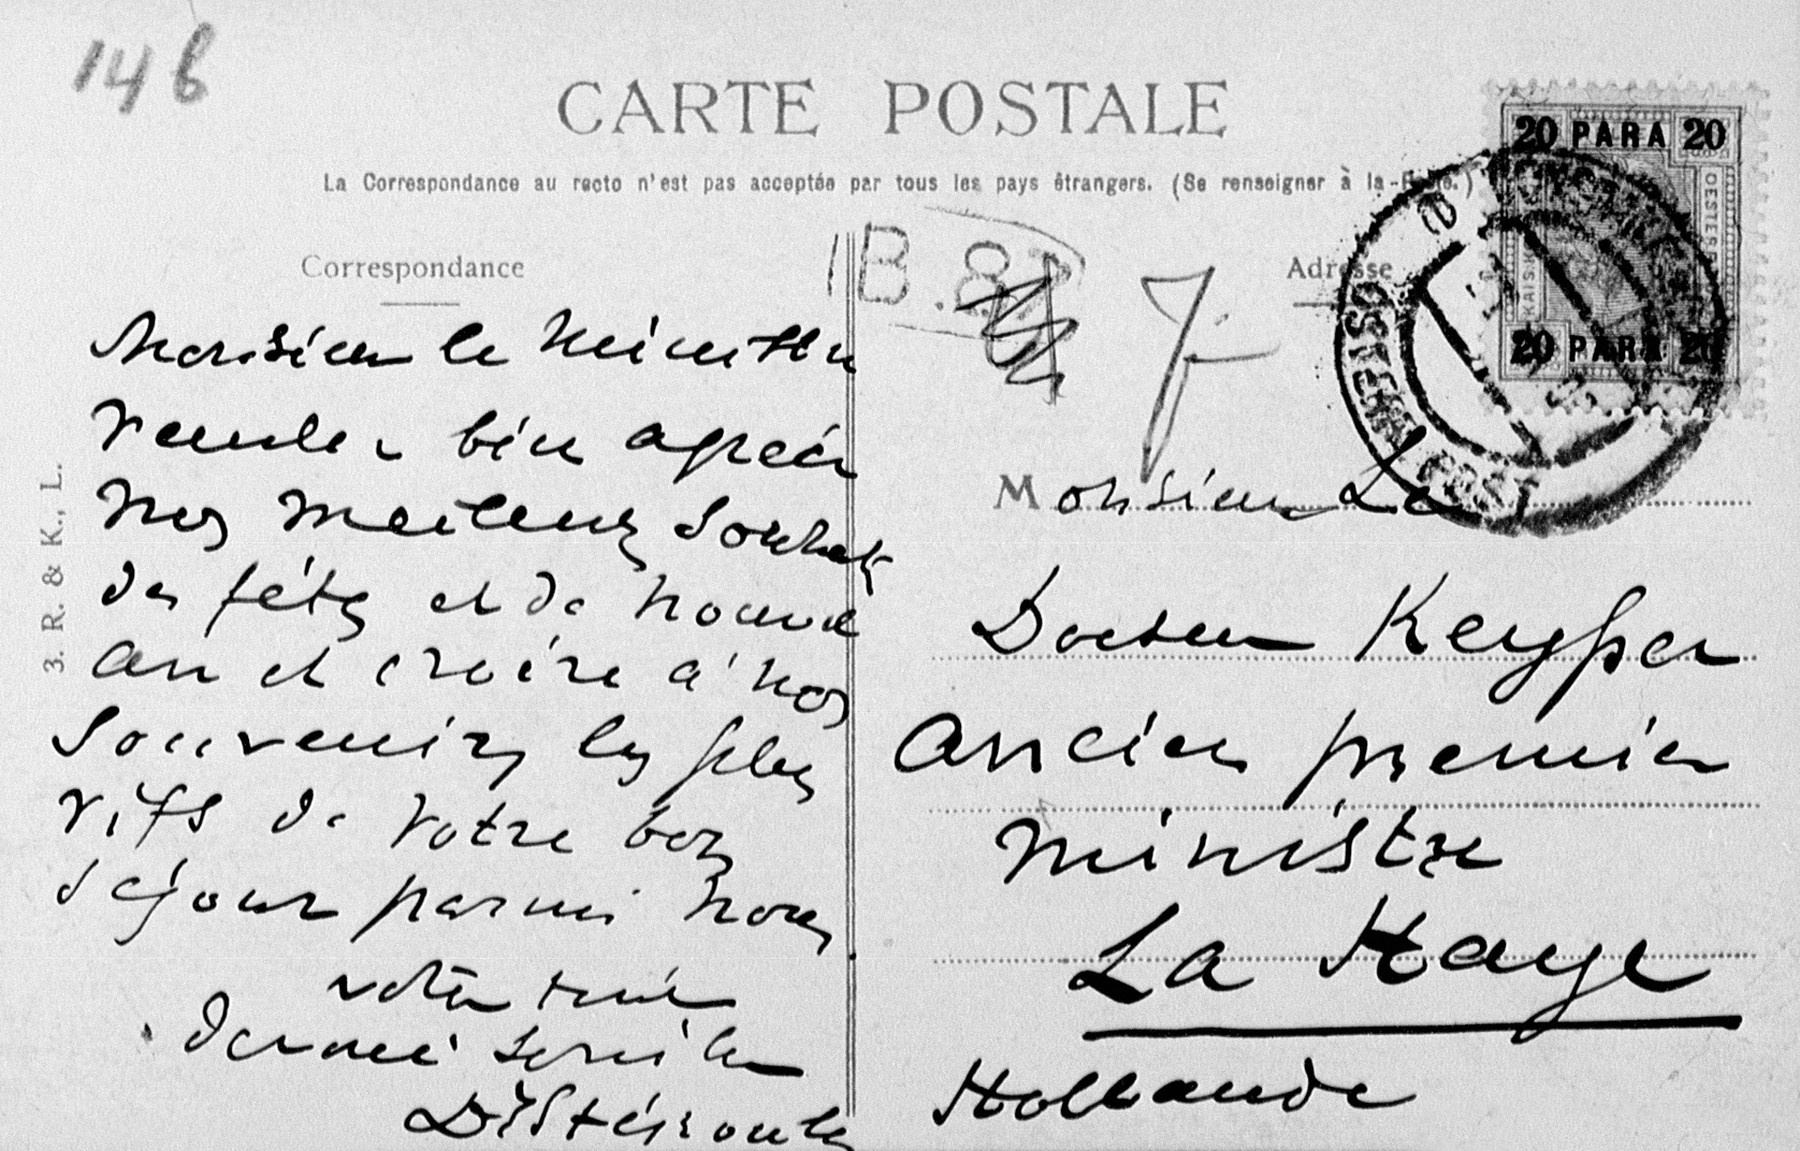 14 b
CARTE POSTALE
La Correspondance au recto n'est pas acceptée par tous les pays étrangers. (Se renseigner à la Poste.)
20 PARA 20
20 PARA 20
OESTERR
KAIS.K
CONSTANTINOPEL
OESTERR. POST
1B.8
Correspondance
Monsieur le Ministre
veuler bien agréer
nos meilleurs souhaits
des fêtes et de nouvel
an et croire à nos
souvenirs les plus
vifs de votre bon
séjour parmi nous
votre
serviteur
3. R. & K., L.
Adresse
Monsieur Le
Docteur Keyper
Ancien premier
ministre
La Haye
Hollande